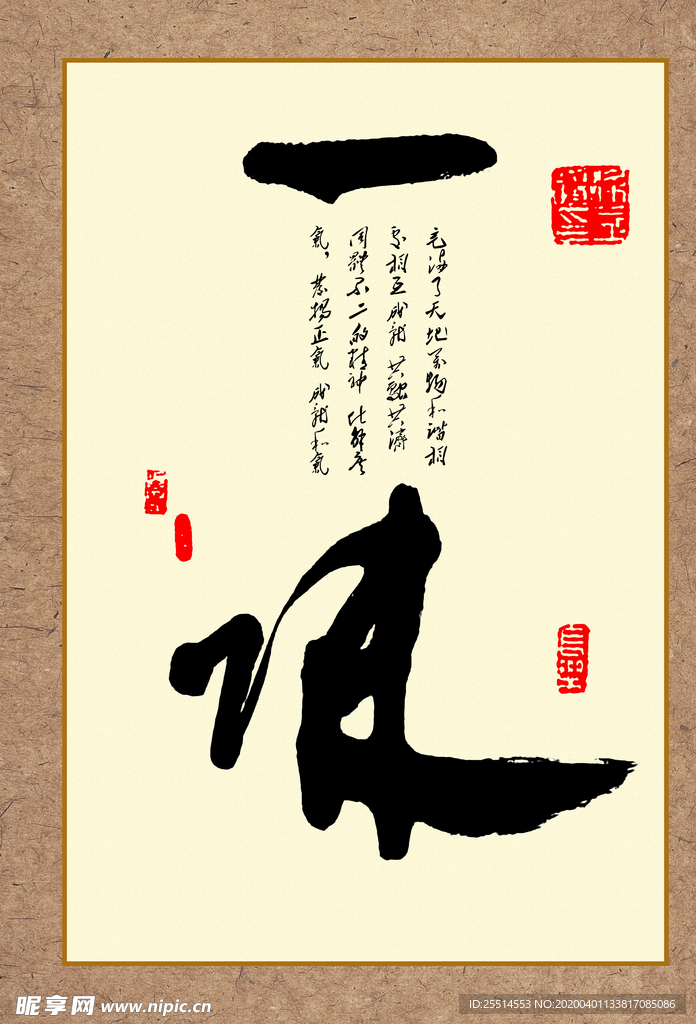 一味
了天地萬物和谐相
相互成就 共融共濟
同體不二的精神 化解戾
氣，揚正氣 成就和氣
昵享网 www.nipic.cn
ID:25514553 NO:20200401133817085086